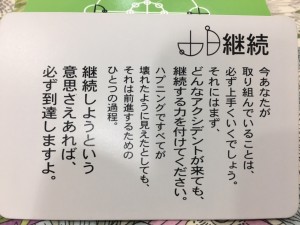 継続
今あなたが
取り組んでいることは、
必ず上手くいくでしょう。
それにはまず、
どんなアクシデントが来ても、
継続する力を付けてください。
ハプニングですべてが
壊れたように見えたとしても、
それは前進するための
ひとつの過程。
継続しようという
意思さえあれば、
必ず到達しますよ。